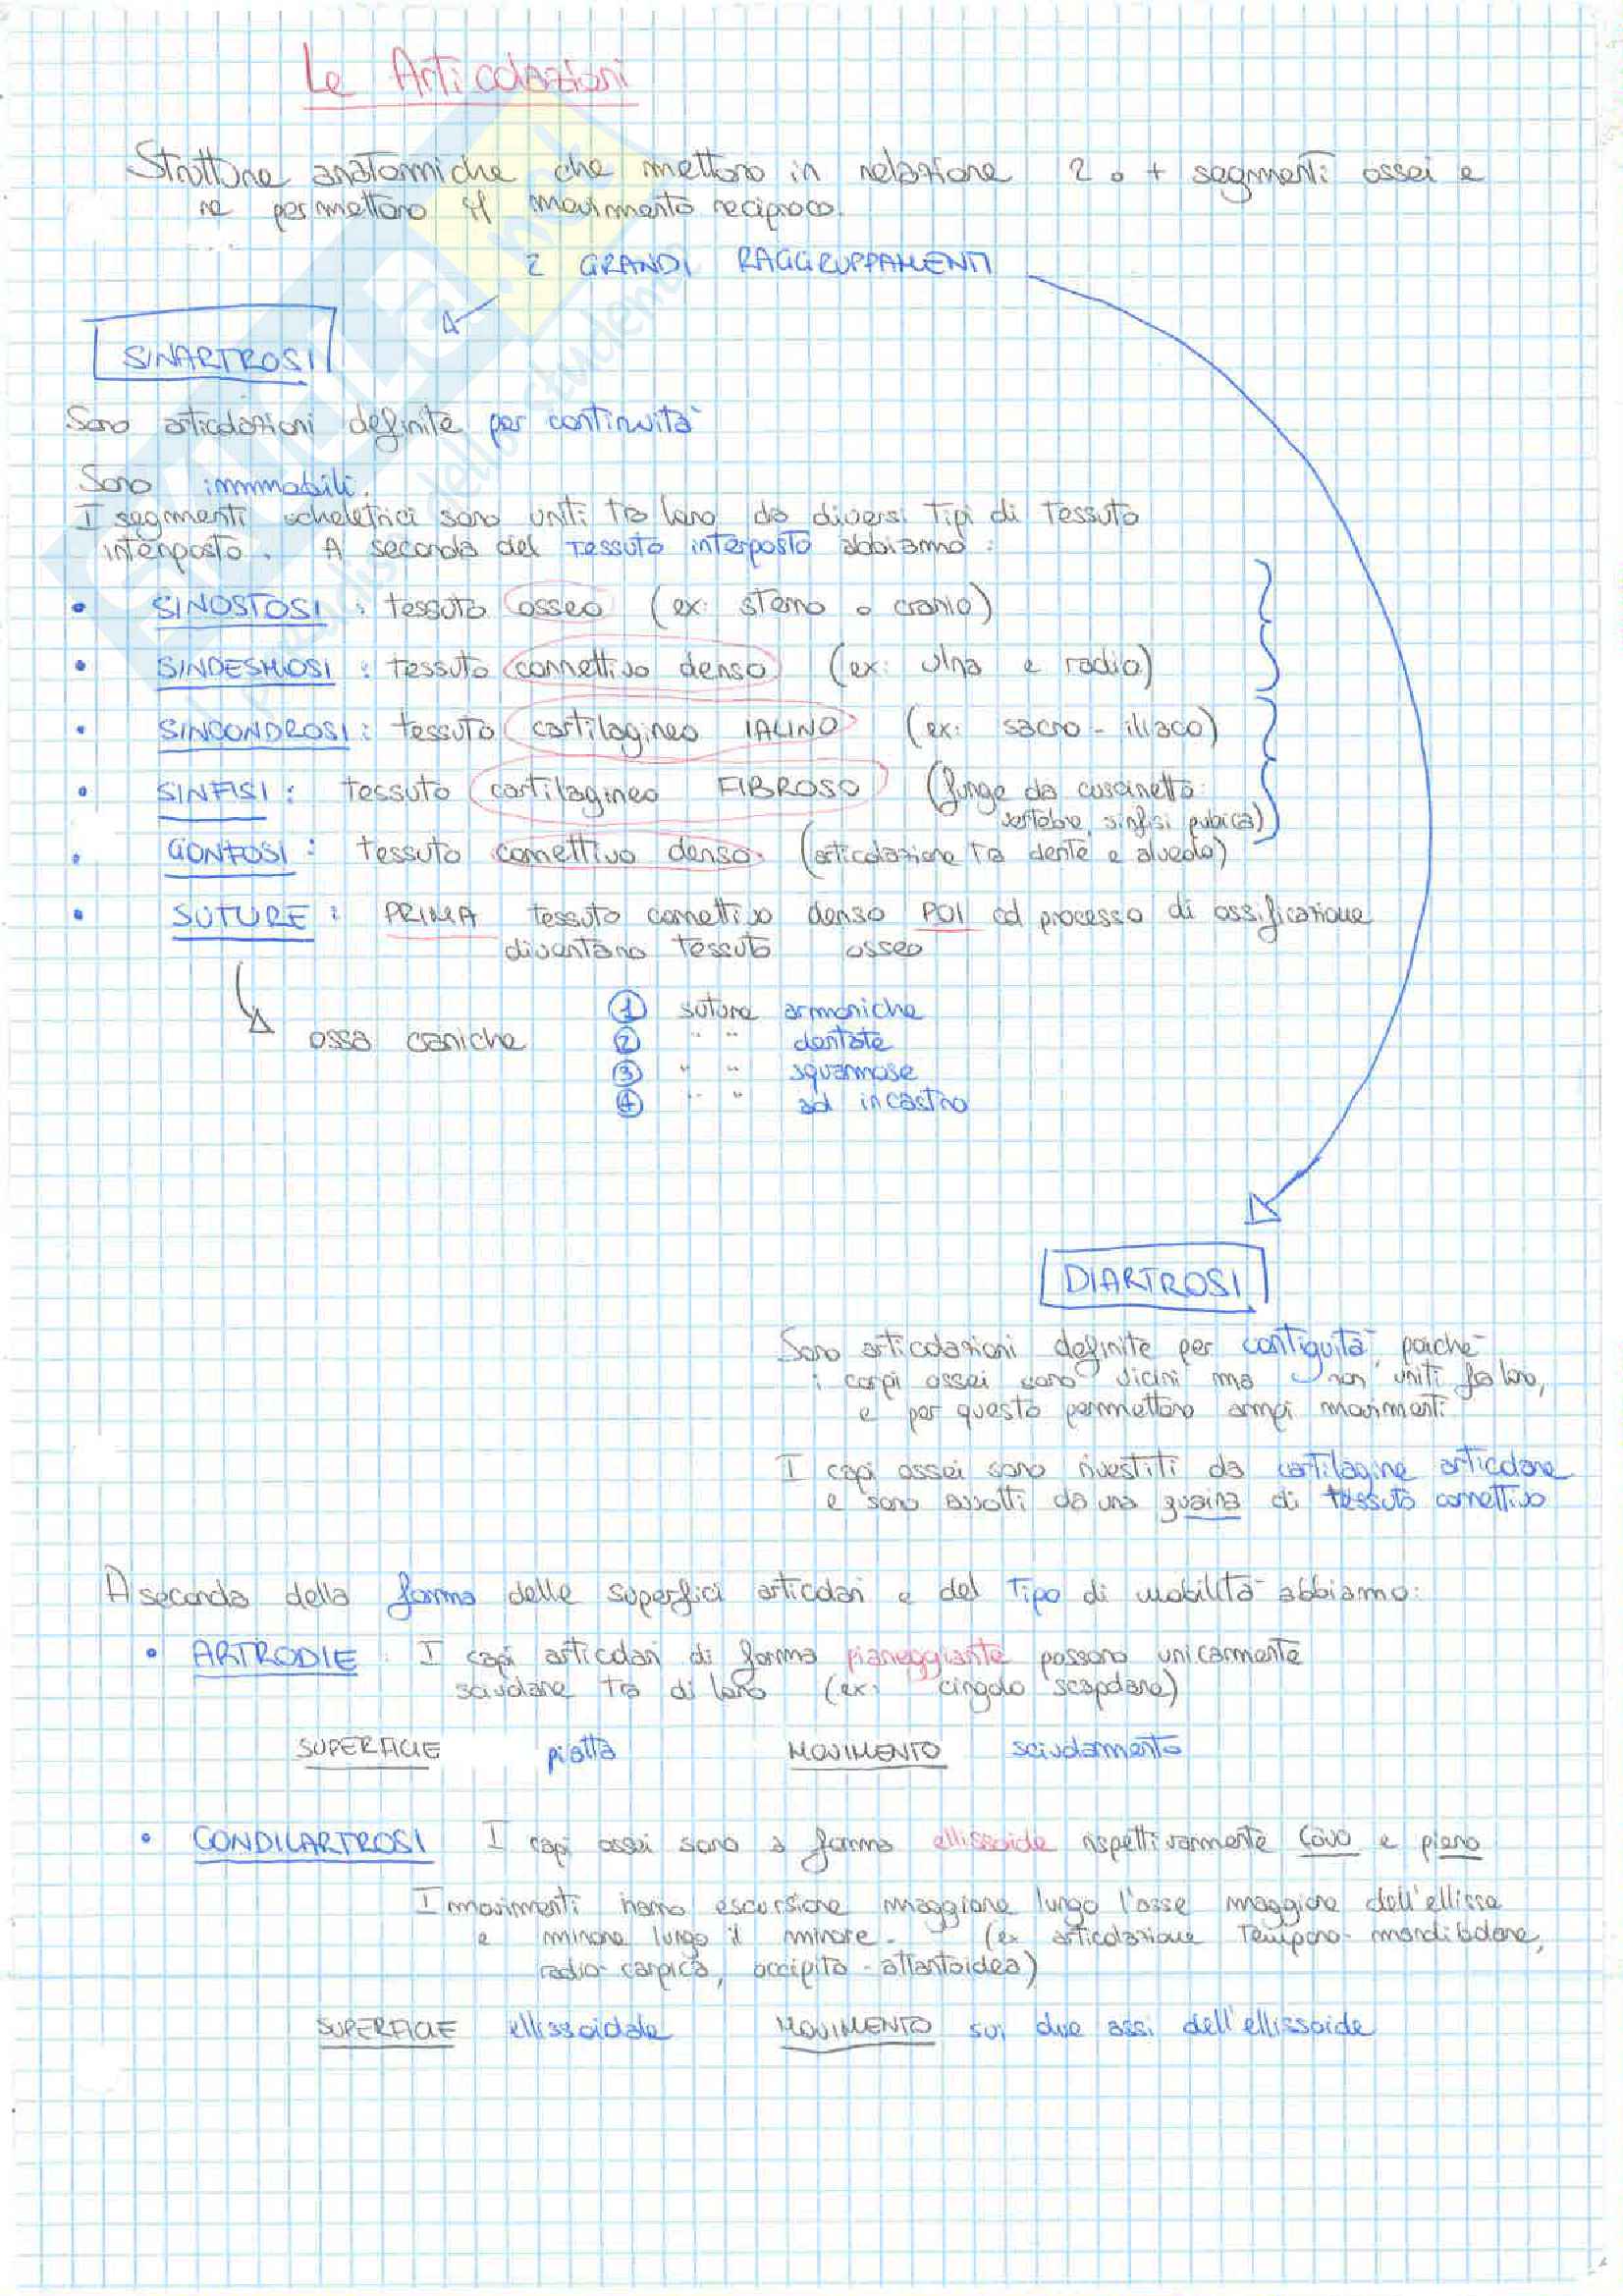 Le Articolazioni
Strutture anatomiche che mettono in relazione 2 o + segmenti ossei e
ne permettono il movimento reciproco.
2 GRANDI RAGGRUPPAMENTI
SINARTROSI
Sono articolazioni definite per continuità
Sono immmobili.
I segmenti scheletrici sono uniti tra loro da diversi tipi di tessuto
interposto. A seconda del tessuto interposto abbiamo:
• SINOSTOSI: tessuto osseo (ex: sterno o cranio)
• SINDESMOSI: tessuto connettivo denso (ex: ulna e radio)
• SINCONDROSI: tessuto cartilagineo IALINO (ex: sacro-iliaco)
• SINFISI: tessuto cartilagineo FIBROSO (funge da cuscinetto:
vertebre, sinfisi pubica)
• GONFOSI: tessuto connettivo denso. (articolazione tra dente e alveolo)
• SUTURE: PRIMA tessuto connettivo denso POI col processo di ossificazione
diventano tessuto osseo
ossa craniche
① suture armoniche
② " " dentate
③ " " squamose
④ " " ad incastro
DIARTROSI
Sono articolazioni definite per contiguità, poiché
i corpi ossei sono vicini ma non uniti fra loro,
e per questo permettono ampi movimenti
I capi ossei sono rivestiti da cartilagine articolare
e sono avvolti da una guaina di tessuto connettivo
A seconda della forma delle superfici articolari e del tipo di mobilità abbiamo:
• ARTRODIE: I capi articolari di forma pianeggiante possono unicamente
scivolare tra di loro (ex: cingolo scapolare)
SUPERFICIE piatta MOVIMENTO scivolamento
• CONDILARTROSI I capi ossei sono a forma ellissoide rispettivamente cavo e pieno
I movimenti hanno escursione maggiore lungo l'asse maggiore dell'ellisse
e minore lungo il minore. (ex articolazione temporo-mandibolare,
radio-carpica, occipito-atlantoidea)
SUPERFICIE ellissoidale MOVIMENTO sui due assi dell'ellissoide